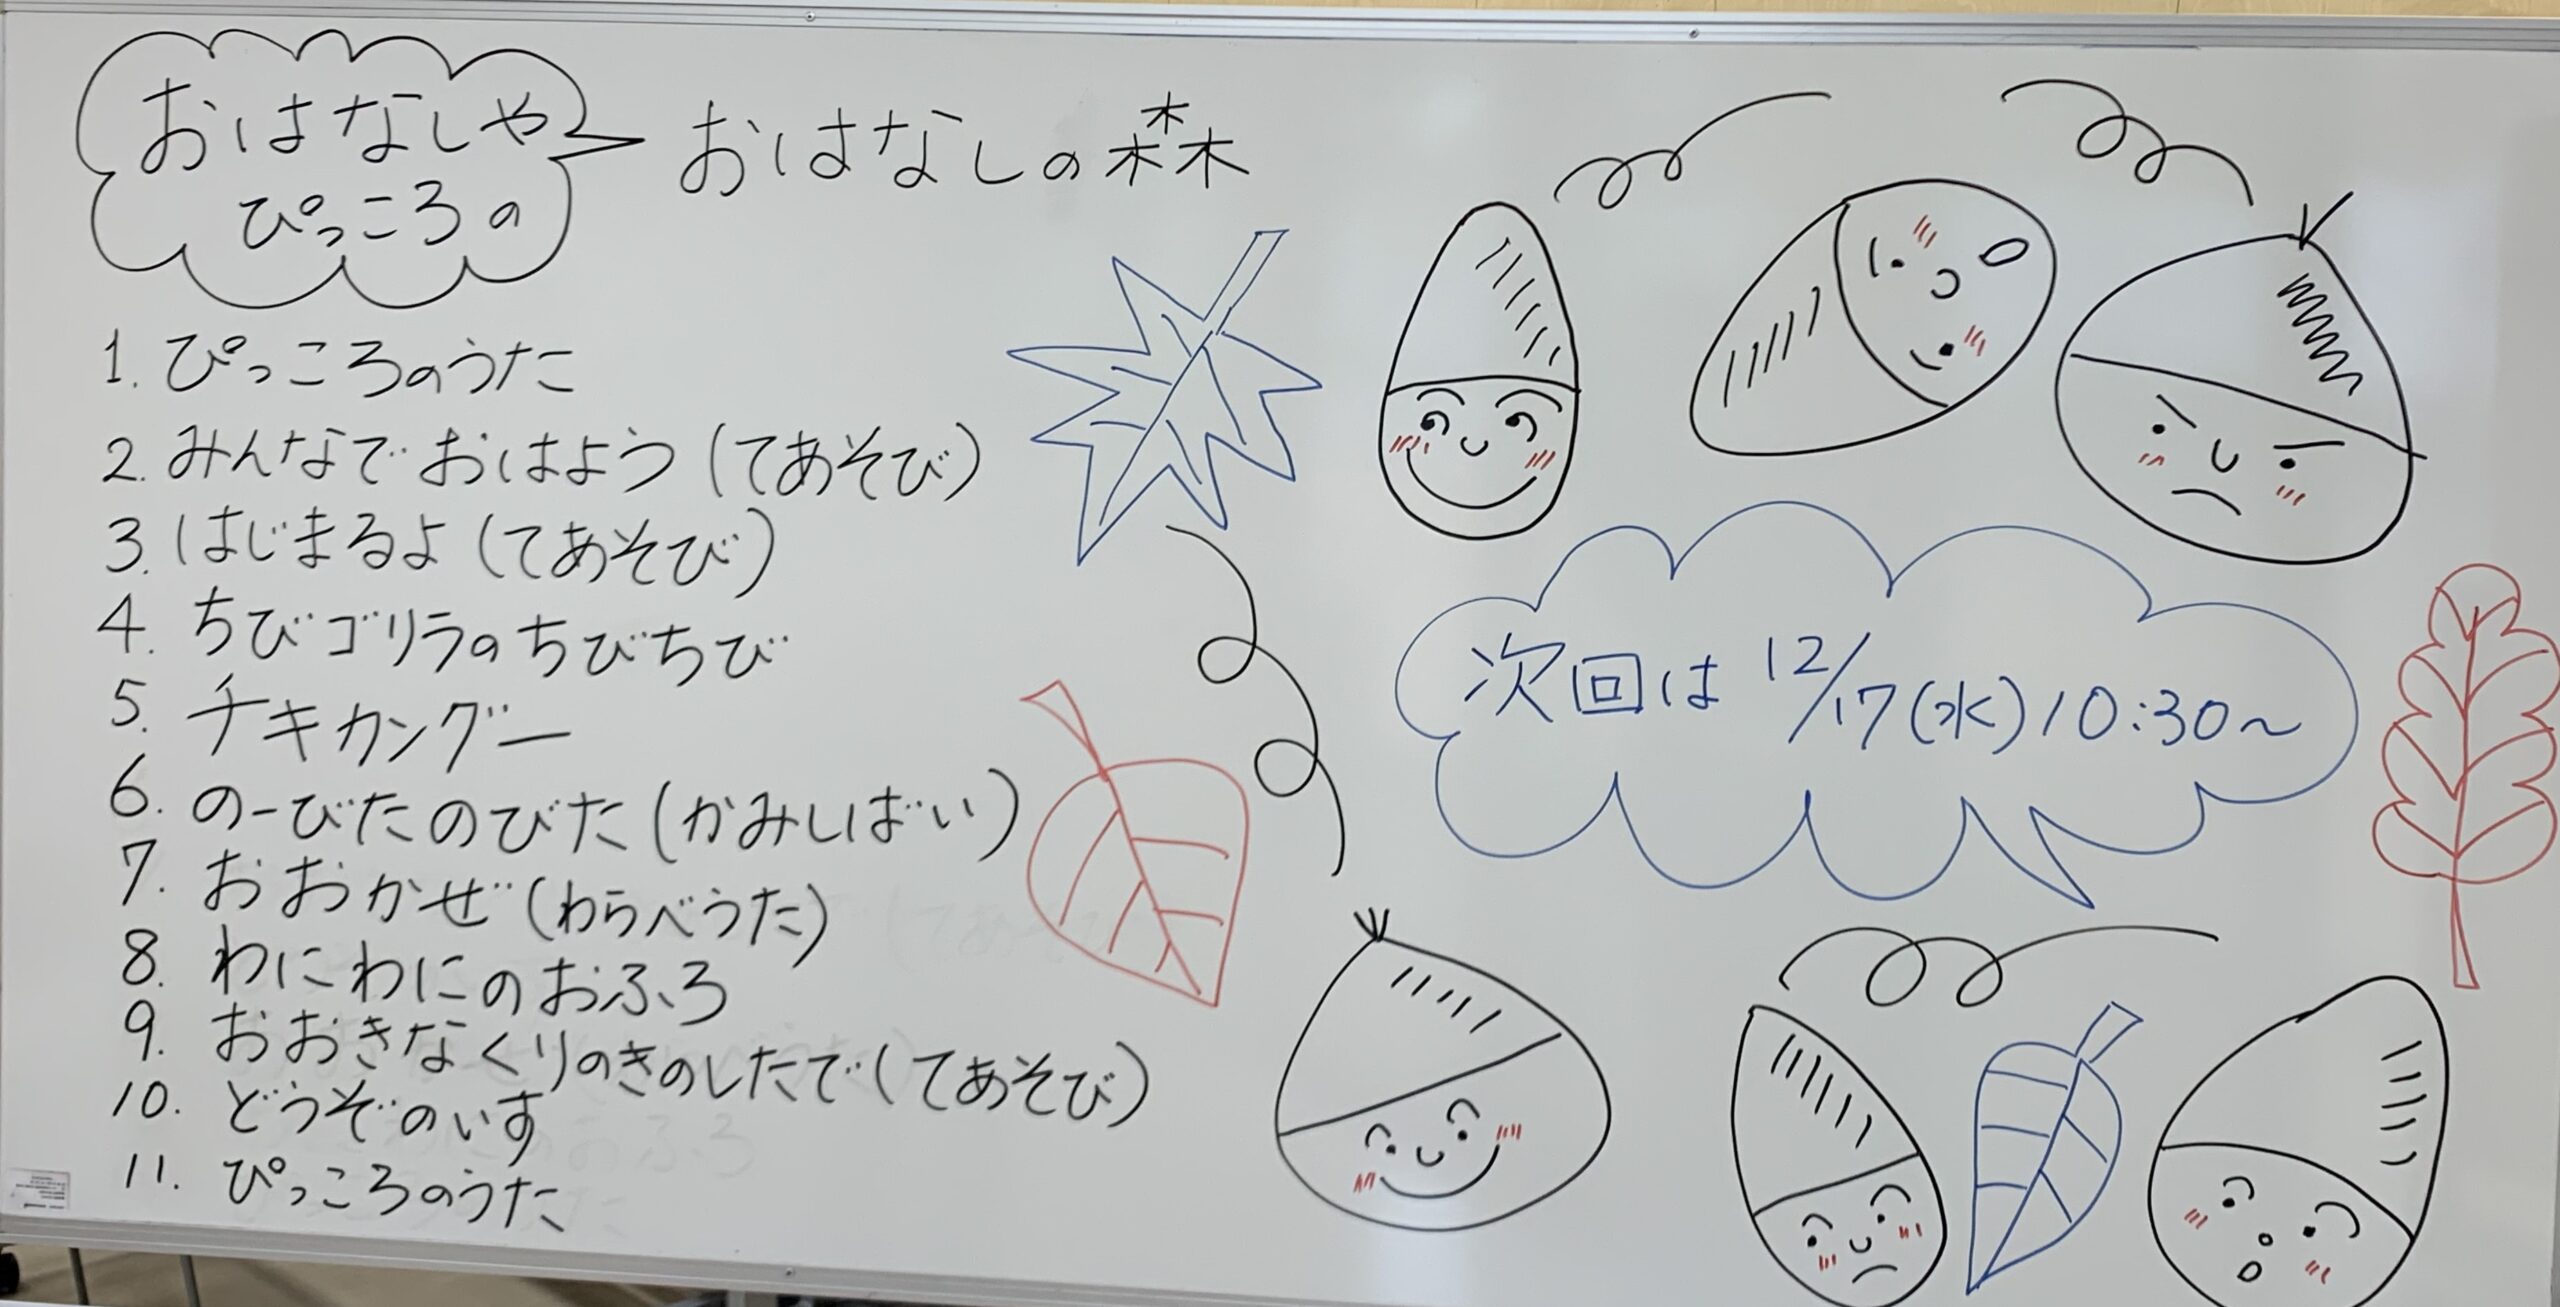 おはなしや
ぴっころの
おはなしの森
1. ぴっころのうた
2. みんなで おはよう (てあそび)
3. はじまるよ (てあそび)
4. ちびゴリラのちびちび
5. チキカングー
6. のーびたのびた (かみしばい)
7. おおかぜ (わらべうた)
8. わにわにのおふろ
9. おおきなくりのきのしたで (てあそび)
10. どうぞのいす
11. ぴっころのうた
次回は 12/17(水) 10:30~